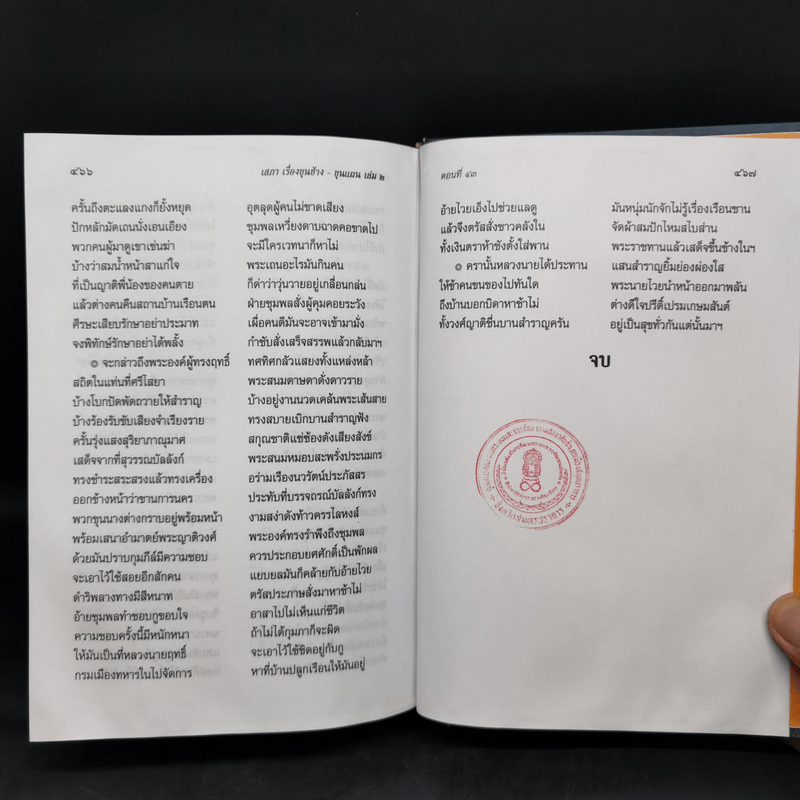 ๔๖๖ เสภา เรื่องขุนช้าง - ขุนแผน เล่ม ๒
ครั้นถึงตะแลงแกงก็ยั้งหยุด อุตลุดผู้คนไม่ขาดเสียง
ปักหลักมัดเถนนั่งเอนเอียง ชุมพลเหวี่ยงดาบฉาดคอขาดไป
พวกคนผู้มาดูเขาเข่นฆ่า จะมีใครเวทนาก็หาไม่
บ้างว่าสมน้ำหน้าสาแก่ใจ พระเถนอะไรมันกินคน
ที่เป็นญาติพี่น้องของคนตาย ก็ด่าว่าวุ่นวายอยู่เกลื่อนกล่น
แล้วต่างคนคืนสถานบ้านเรือนตน ฝ่ายชุมพลสั่งผู้คุมคอยระวัง
ศีรษะเสียบรักษาอย่าประมาท เผื่อคนดีมันจะอาจเข้ามามั่ง
จงพิทักษ์รักษาอย่าได้พลั้ง กำชับสั่งเสร็จสรรพแล้วกลับมาฯ
๏ จะกล่าวถึงพระองค์ผู้ทรงฤทธิ์ ทศทิศกลัวแสยงทั้งแหล่งหล้า
สถิตในแท่นที่ศรีไสยา พระสนมดาษดาดั่งดาวราย
บ้างโบกปัดพัดถวายให้สำราญ บ้างอยู่งานนวดเคล้นพระเส้นสาย
บ้างร้องรับขับเสียงจำเรียงราย ทรงสบายเบิกบานสำราญฟัง
ครั้นรุ่งแสงสุริยาภาณุมาศ สกุณชาติแซ่ซ้องดังเสียงสังข์
เสด็จจากที่สุวรรณบัลลังก์ พระสนมหมอบสะพรั่งประนมกร
ทรงชำระสระสรงแล้วทรงเครื่อง อร่ามเรืองนวรัตน์ประภัสสร
ออกข้างหน้าว่าขานการนคร ประทับที่บรรจถรณ์บัลลังก์ทรง
พวกขุนนางต่างกราบอยู่พร้อมหน้า งามสง่าดังท้าวครรไลหงส์
พร้อมเสนาอำมาตย์พระญาติวงศ์ พระองค์ทรงรำพึงถึงชุมพล
ด้วยมันปราบกุมภีล์มีความชอบ ควรประกอบยศศักดิ์เป็นพักผล
จะเอาไว้ใช้สอยอีกสักคน แยบยลมันก็คล้ายกับอ้ายไวย
ดำริพลางทางมีสีหนาท ตรัสประภาษสั่งมาหาช้าไม่
อ้ายชุมพลทำชอบกูขอบใจ อาสาไปไม่เห็นแก่ชีวิต
ความชอบครั้งนี้มีหนักหนา ถ้าไม่ได้กุมภาก็จะผิด
ให้มันเป็นที่หลวงนายฤทธิ์ จะเอาไว้ใช้ชิดอยู่กับกู
กรมเมืองทหารในไปจัดการ หาที่บ้านปลูกเรือนให้มันอยู่
ตอนที่ ๔๓ ๔๖๗
อ้ายไวยเอ็งไปช่วยแลดู มันหนุ่มนักจักไม่รู้เรื่องเรือนชาน
แล้วจึงตรัสสั่งชาวคลังใน จัดผ้าสมปักไหมสไบส่าน
ทั้งเงินตราห้าชั่งตั้งใส่พาน พระราชทานแล้วเสด็จขึ้นข้างในฯ
๏ ครานั้นหลวงนายได้ประทาน แสนสำราญยิ้มย่องผ่องใส
ให้ข้าคนขนของไปทันใด พระนายไวยนำหน้าออกมาพลัน
ถึงบ้านบอกบิดาหาช้าไม่ ต่างดีใจปรีดิ์เปรมเกษมสันต์
ทั้งวงศ์ญาติชื่นบานสำราญครัน อยู่เป็นสุขทั่วกันแต่นั้นมาฯ
จบ